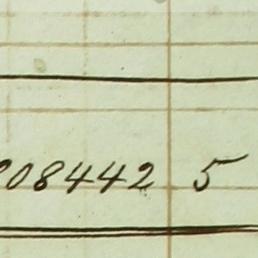 08442 5